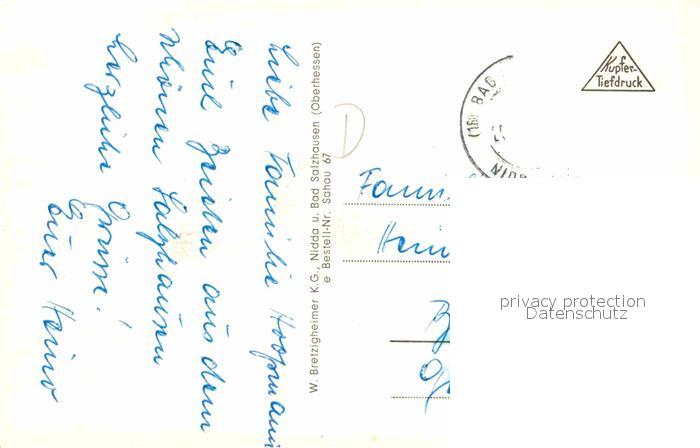 Liebe Familie Hoopmann
Euch Grüßen aus dem
schönen Salzhausen
herzliche Grüsse!
Euer Heino
W. Bretzigheimer K.G., Nidda u. Bad Salzhausen (Oberhessen)
e Bestell-Nr. Sahau 67
Kupfer-
Tiefdruck
(16) BAD
NIDD
Fam
Hein
privacy protection
Datenschutz